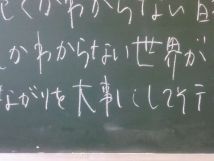 しかわからない自
しかわからない世界が
ながりを大事にして行